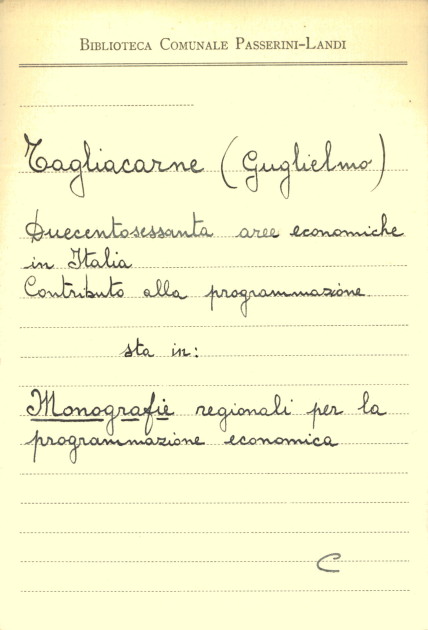 BIBLIOTECA COMUNALE PASSERINI-LANDI
Tagliacarne (Guglielmo)
Duecentosessanta aree economiche
in Italia
Contributo alla programmazione
sta in:
Monografie regionali per la
programmazione economica
C